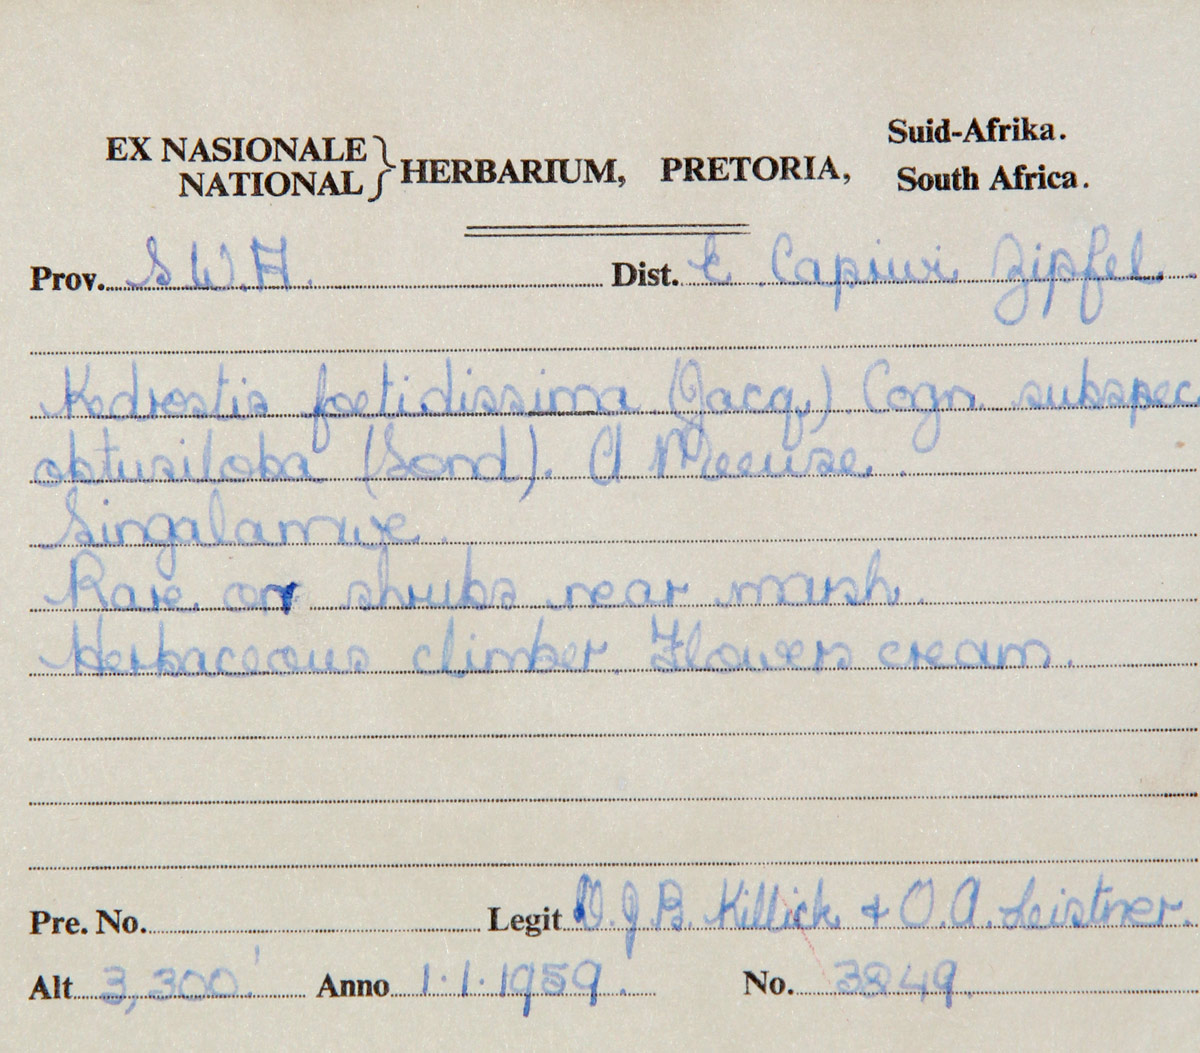 EX NASIONALE NATIONAL } HERBARIUM, PRETORIA, Suid-Afrika. South Africa.
Prov. S.W.A. Dist. E. Capriwi Zipfel.
Kedrostis foetidissima (Jacq.) Cogn. subspec
obtusiloba (Sond). A Meeuse.
Singalamwe.
Rare on shrubs near marsh.
Herbaceous climber. Flowers cream.
Pre. No. Legit D.J.B. Killick & O.A. Leistner.
Alt 3,300' Anno 1.1.1959. No. 3249.